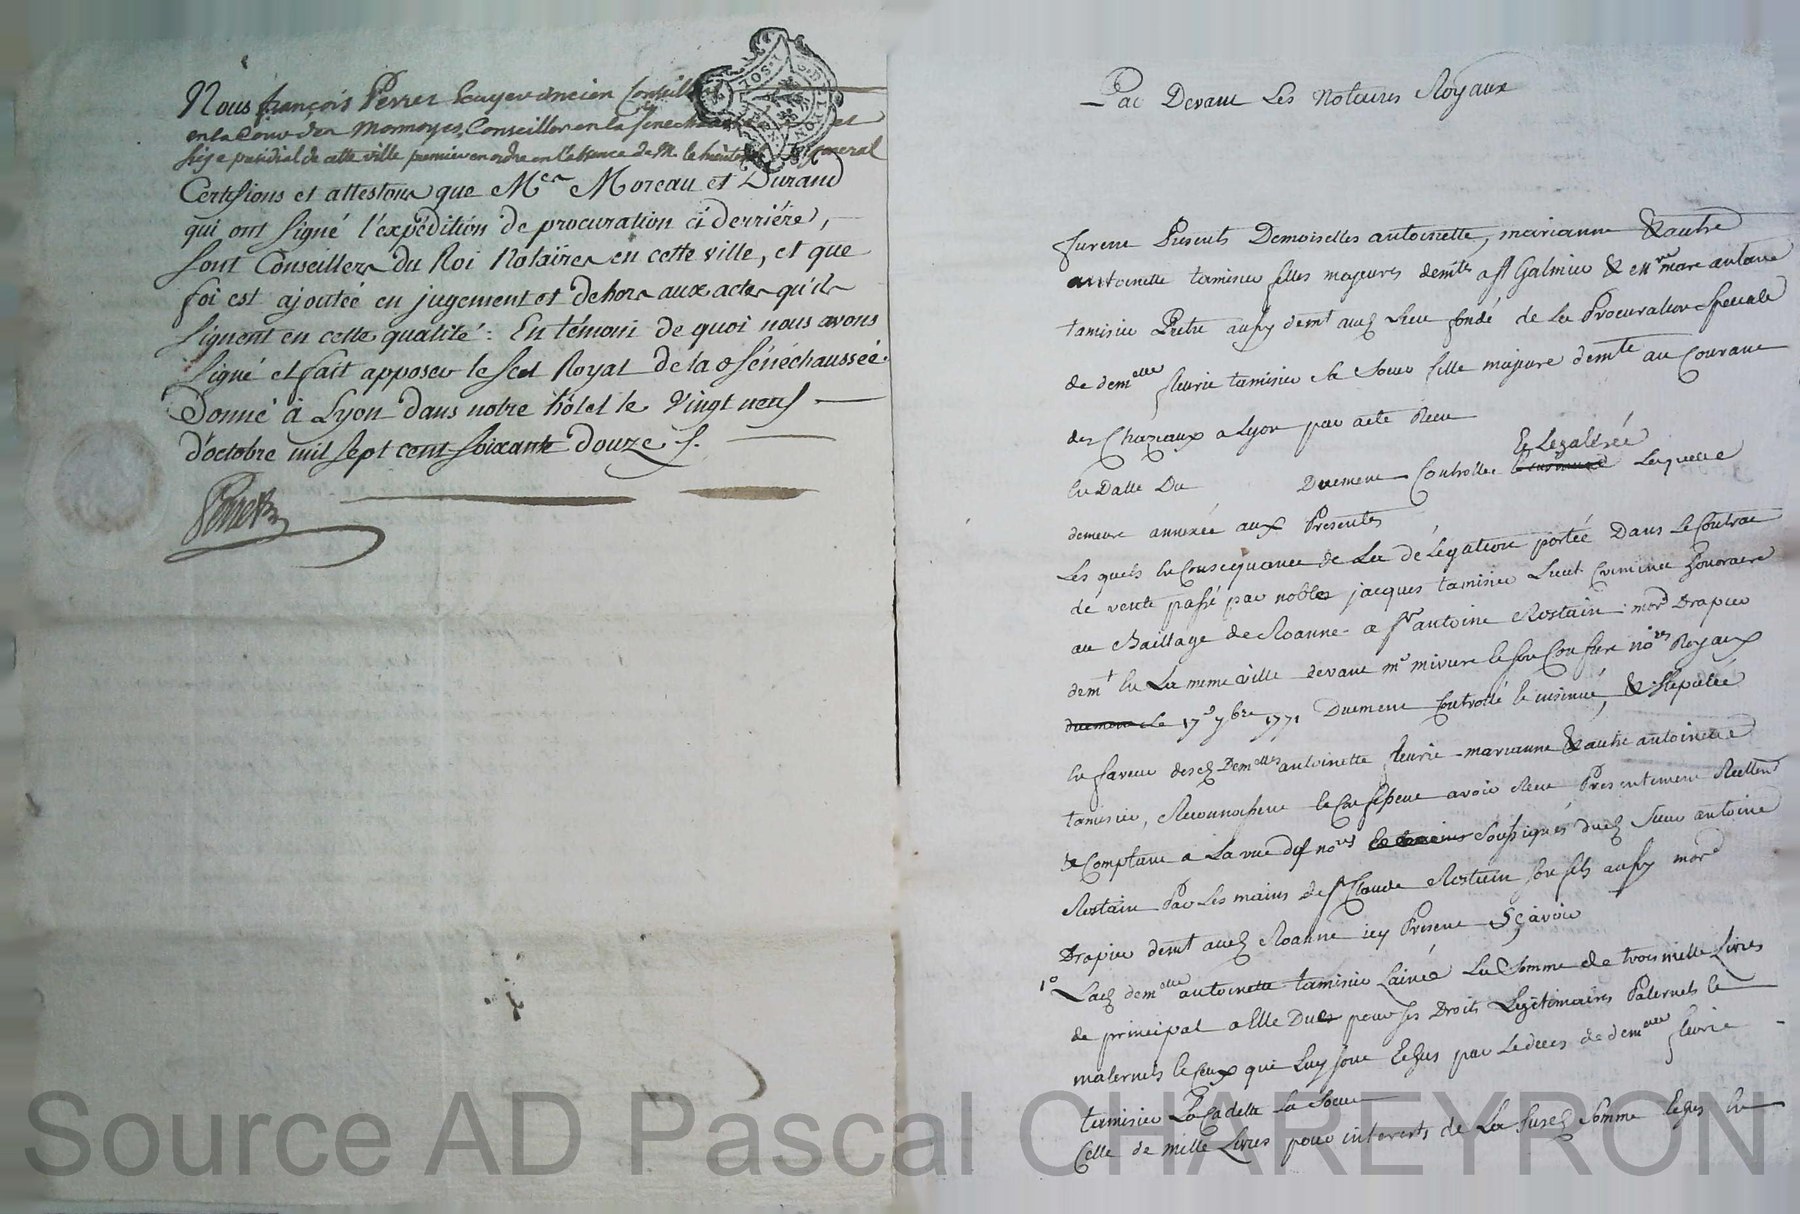 Nous françois Perret Ecuyer ancien Conseill
en la Cour des Monnoyes, Conseiller en la Senech et
siège presidial de cette ville premier en ordre en l'absence de M. le lieute general
Certifions et attestons que Mes Moreau et Durand
qui ont signé l'expédition de procuration ci derriére,
sont Conseillers du Roi Notaires en cette ville, et que
foi est ajoutée en jugement et dehors aux actes qu'ils
signent en cette qualité : En témoin de quoi nous avons
signé et fait apposer le scel Royal de la Sénéchaussée.
Donné à Lyon dans notre hôtel le vingt neuf
d'octobre mil sept cent soixante douze
Perret
Par Devant Les Notaires Royaux
furent Presents Demoiselles antoinette, marianne & autre
antoinette tamisier filles majeures demtes a st Galmier & mre marc antoine
tamisier Prêtre aussy demt aud lieu fondé de La Procuration speciale
de demelle fleurie tamisier sa soeur fille majeure demte au Couvent
des Chazeaux a Lyon par acte Recu
En Datte Du Duement Controllée & Legalisée Laquelle
demeure annexée aux Presentes
Lesquels En Consequance de La délégation portée Dans Le Contrat
de vente passé par noble jacques tamisier Lieut Criminel honoraire
au Baillage de Roanne a sr antoine Rostain mard Drapier
demt En La meme ville devant me miviere & son Confrere nores Royaux
duement le 17e 7bre 1771 Duement Controllé & insinué, & stipulée
En faveur desd Demelles antoinette fleurie marianne & autre antoinette
tamisier, Reconnoissent & Confessent avoir Recu Presentement Reellement
& Comptant a La vue des nores soussignés dud sieur antoine
Rostain Par Les mains de sr Claude Rostain son fils aussy mard
Drapier demt aud Roanne icy Present Sçavoir
1° Lad demelle antoinette tamisier L'ainée La somme de trois mille Livres
de principal a Elle Dues pour ses Droits Legitimaires Paternels &
maternels & ceux qui Luy sont Echus par Le deces de demelle fleurie
tamisier La Cadette sa soeur
Celle de mille Livres pour interets de La susd somme Echus En
Source AD Pascal CHAREYRON